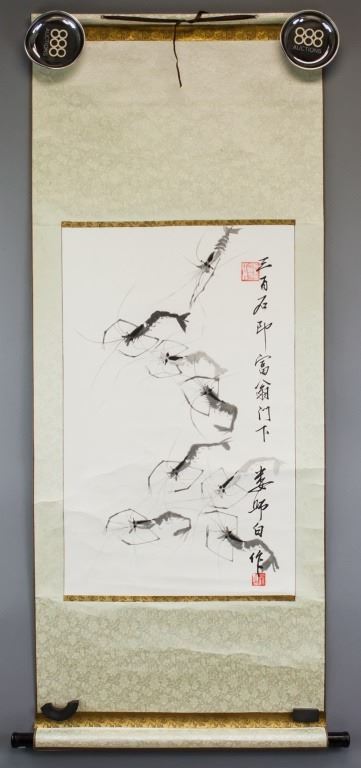 三百石印富翁门下
娄师白作
888
AUCTIONS
888
AUCTIONS